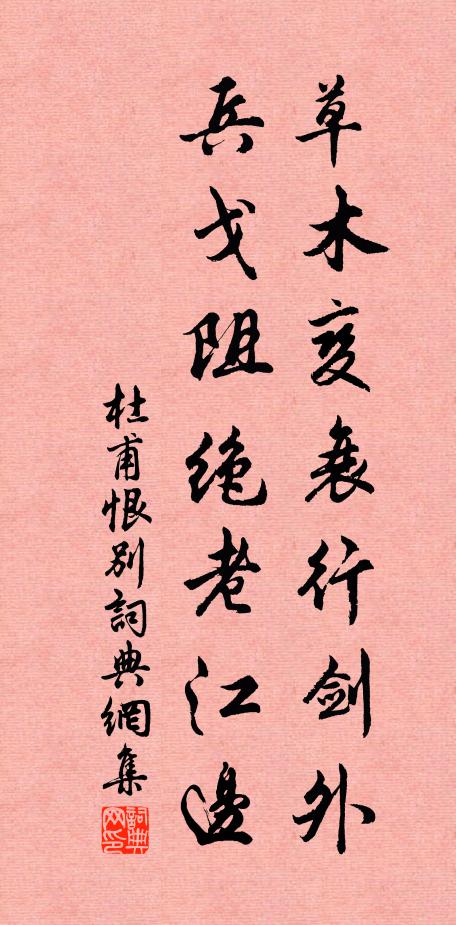 草木变衰行剑外
兵戈阻绝老江邊
杜甫恨別詞典網集
詞典网印